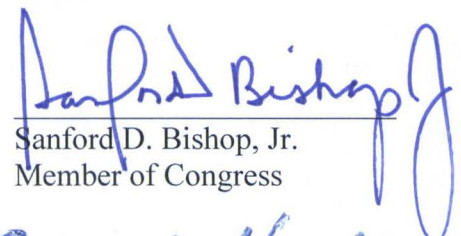 Sanford D Bishop Jr
Sanford D. Bishop, Jr.
Member of Congress